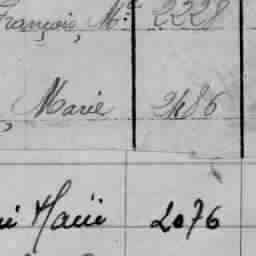 François Mie 2228
, Marie 2486
Marie 2076